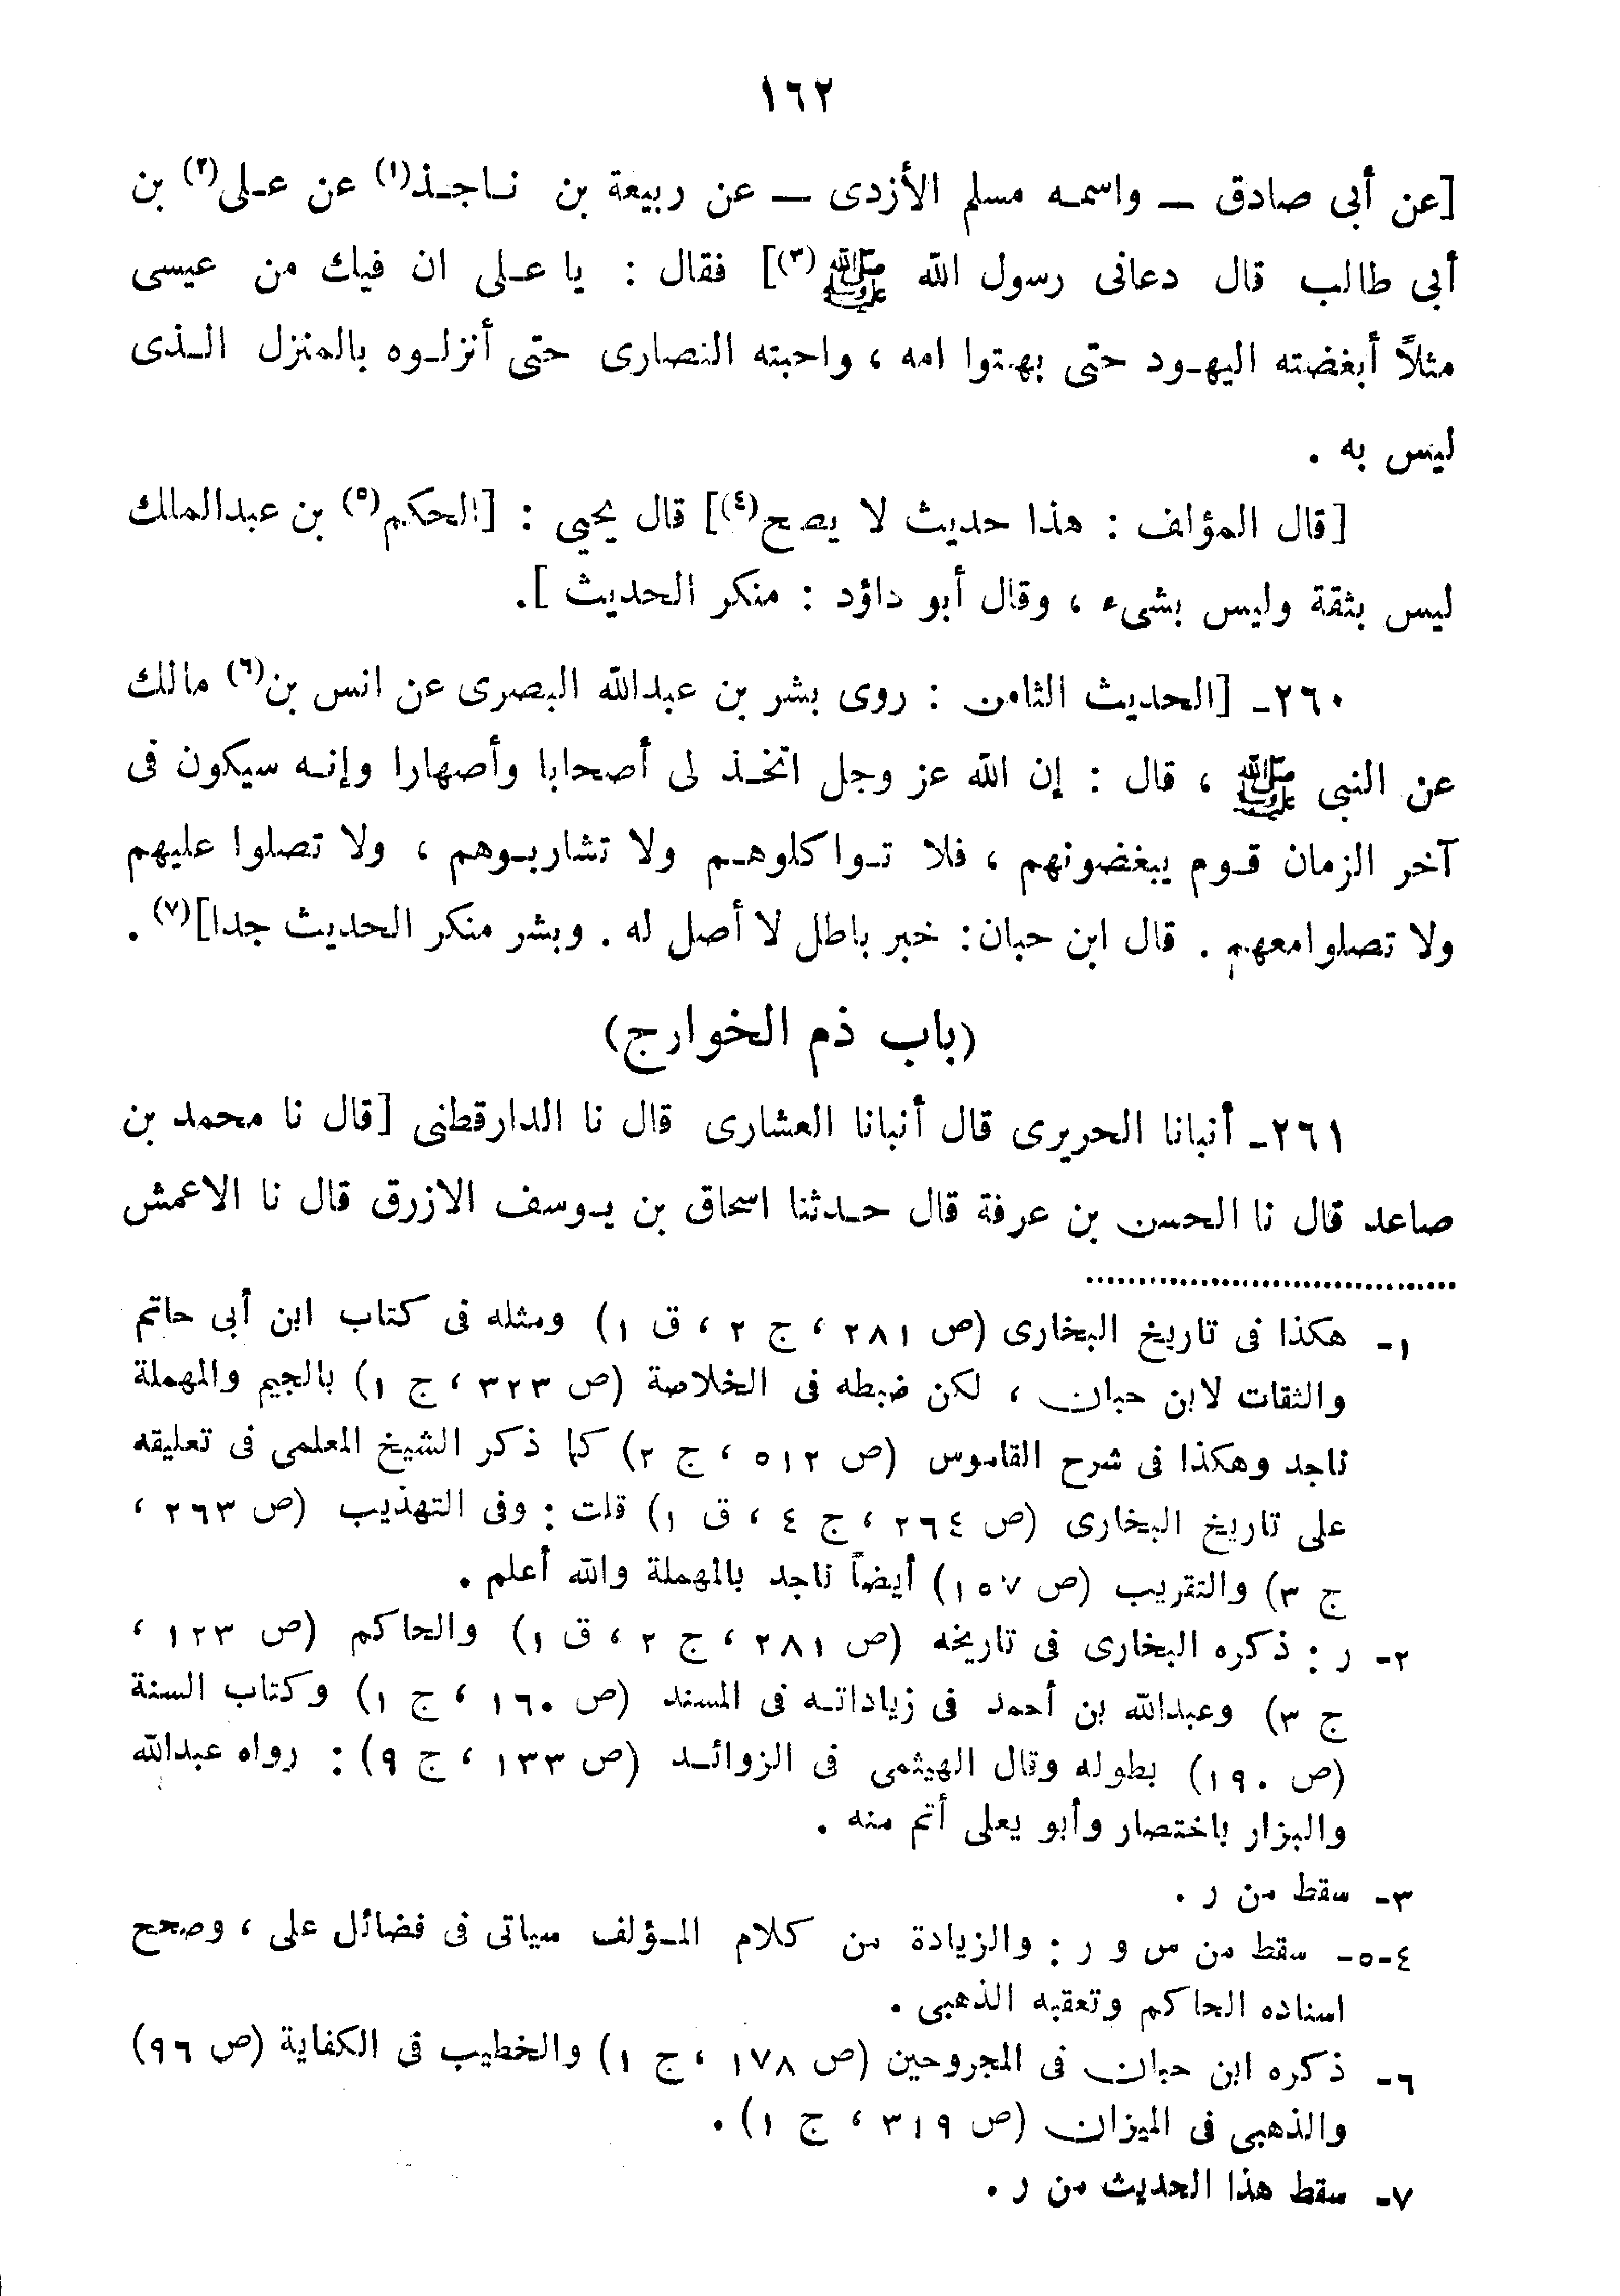 ١٦٢
[عن أبى صادق — واسمه مسلم الأزدى — عن ربيعة بن ناجذ(١) عن على(٢) بن
أبى طالب قال دعانى رسول الله ﷺ(٣)] فقال : يا على ان فيك من عيسى
مثلاً أبغضته اليهود حتى بهتوا امه ، واحبته النصارى حتى أنزلوه بالمنزل الذى
ليس به .
[قال المؤلف : هذا حديث لا يصح(٤)] قال يحيى : [الحكم(٥) بن عبدالملك
ليس بثقة وليس بشىء ، وقال أبو داؤد : منكر الحديث ].
٢٦٠ـ [الحديث الثامن : روى بشر بن عبدالله البصرى عن انس بن(٦) مالك
عن النبى ﷺ ، قال : إن الله عز وجل اتخذ لى أصحابا وأصهارا وإنه سيكون فى
آخر الزمان قوم يبغضونهم ، فلا تواكلوهم ولا تشاربوهم ، ولا تصلوا عليهم
ولا تصلوا معهم . قال ابن حبان : خبر باطل لا أصل له . وبشر منكر الحديث جدا](٧) .
(باب ذم الخوارج)
٢٦١ـ أنبانا الحريرى قال أنبانا العشارى قال نا الدارقطنى [قال نا محمد بن
صاعد قال نا الحسن بن عرفة قال حدثنا اسحاق بن يوسف الازرق قال نا الاعمش
١ـ هكذا فى تاريخ البخارى (ص ٢٨١ ، ج ٢ ، ق ١) ومثله فى كتاب ابن أبى حاتم
والثقات لابن حبان ، لكن ضبطه فى الخلاصة (ص ٣٢٣ ، ج ١) بالجيم والمهملة
ناجد وهكذا فى شرح القاموس (ص ٥١٢ ، ج ٢) كما ذكر الشيخ المعلمى فى تعليقه
على تاريخ البخارى (ص ٢٦٤ ، ج ٤ ، ق ١) قلت : وفى التهذيب (ص ٢٦٣ ،
ج ٣) والتقريب (ص ١٥٧) أيضاً ناجد بالمهملة والله أعلم .
٢ـ ر : ذكره البخارى فى تاريخه (ص ٢٨١ ، ج ٢ ، ق ١) والحاكم (ص ١٢٣ ،
ج ٣) وعبدالله بن أحمد فى زياداته فى المسند (ص ١٦٠ ، ج ١) وكتاب السنة
(ص ١٩٠) بطوله وقال الهيثمى فى الزوائد (ص ١٣٣ ، ج ٩) : رواه عبدالله
والبزار باختصار وأبو يعلى أتم منه .
٣ـ سقط من ر .
٤-٥ـ سقط من س و ر : والزيادة من كلام المؤلف سياتى فى فضائل على ، وصحح
اسناده الحاكم وتعقبه الذهبى .
٦ـ ذكره ابن حبان فى المجروحين (ص ١٧٨ ، ج ١) والخطيب فى الكفاية (ص ٩٦)
والذهبى فى الميزان (ص ٣١٩ ، ج ١) .
٧ـ سقط هذا الحديث من ر .